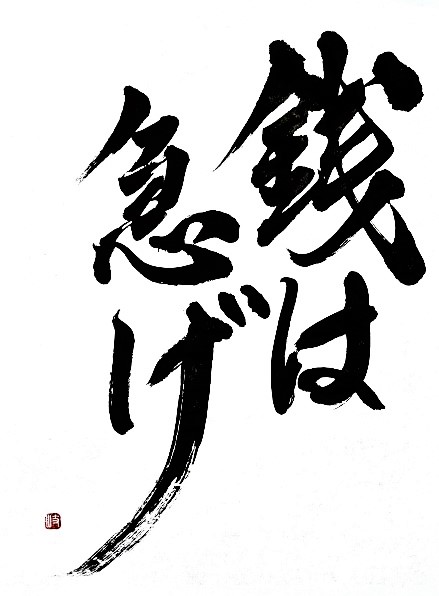 銭は
急げ